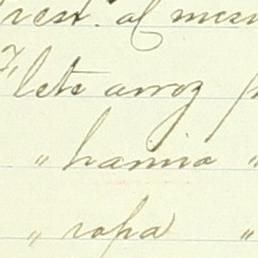 rest. al mes
Flete arroz p
" harina "
" ropa "